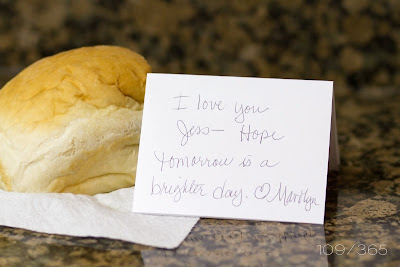 I love you
Jess— Hope
tomorrow is a
brighter day. ♡ Marilyn
109/365